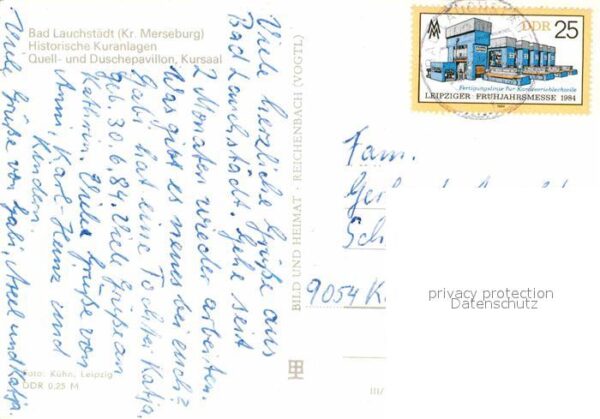 Bad Lauchstädt (Kr. Merseburg)
Historische Kuranlagen
Quell- und Duschepavillon, Kursaal
Viele herzliche Grüße aus
Bad Lauchstädt. Gehe seit
2 Monaten wieder arbeiten.
Was gibt es neues bei euch?
Gabi hat eine Tochter Katja,
geb. 30.6.84. Viele Grüße an
Kathrin. Viele Grüße von
Anni, Karl-Heinz und
Kindern.
Viele Grüße von Gabi, Axel und Katja.
Foto: Kühn, Leipzig
DDR 0,25 M
BILD UND HEIMAT · REICHENBACH (VOGTL)
III/
DDR 25
Fertigungslinie für Karosserieblechteile
LEIPZIGER FRÜHJAHRSMESSE 1984
Fam.
9054 K.
privacy protection
Datenschutz